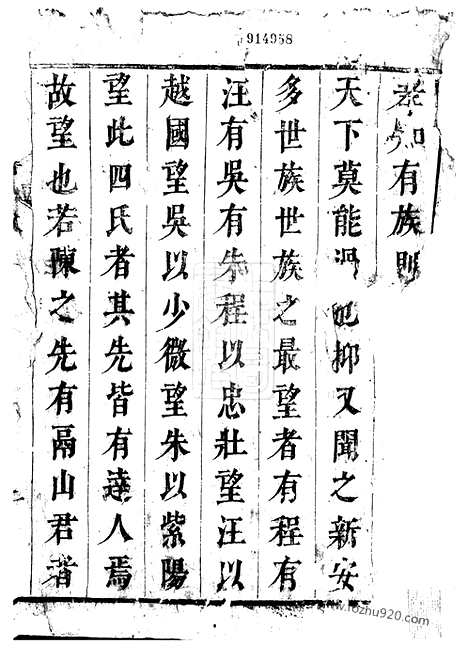 914968
有族則
天下莫能也抑又聞之新安
多世族世族之最望者有程有
汪有吳有朱程以忠壯望汪以
越國望吳以少微望朱以紫陽
望此四氏者其先皆有達人焉
故望也若陳之先有鬲山君者
www.fozhu920.com